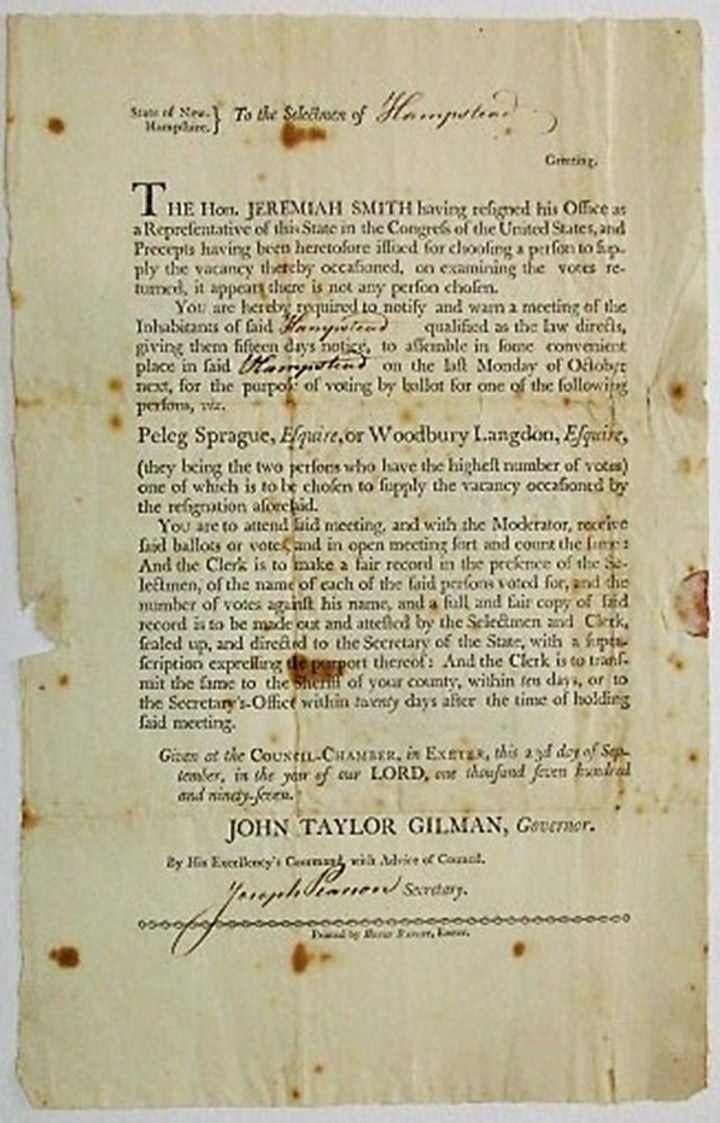 State of New-
Hampshire. } To the Selectmen of Hampstead
Greeting.
THE Hon. JEREMIAH SMITH having reſigned his Office as
a Repreſentative of this State in the Congreſs of the United States, and
Precepts having been heretofore iſſued for chooſing a perſon to ſup-
ply the vacancy thereby occaſioned, on examining the votes re-
turned, it appears there is not any perſon choſen.
YOU are hereby required to notify and warn a meeting of the
Inhabitants of ſaid Hampstead qualified as the law directs,
giving them fifteen days notice, to aſſemble in ſome convenient
place in ſaid Hampstead on the laſt Monday of October
next, for the purpoſe of voting by ballot for one of the following
perſons, viz.
Peleg Sprague, Eſquire, or Woodbury Langdon, Eſquire,
(they being the two perſons who have the higheſt number of votes)
one of which is to be choſen to ſupply the vacancy occaſioned by
the reſignation aforeſaid.
YOU are to attend ſaid meeting, and with the Moderator, receive
ſaid ballots or votes, and in open meeting ſort and count the ſame:
And the Clerk is to make a fair record in the preſence of the Se-
lectmen, of the name of each of the ſaid perſons voted for, and the
number of votes againſt his name, and a full and fair copy of ſaid
record is to be made out and atteſted by the Selectmen and Clerk,
ſealed up, and directed to the Secretary of the State, with a ſuper-
ſcription expreſſing the purport thereof: And the Clerk is to tranſ-
mit the ſame to the Sheriff of your county, within ten days, or to
the Secretary's-Office within twenty days after the time of holding
ſaid meeting.
Given at the COUNCIL-CHAMBER, in EXETER, this 23d day of Sep-
tember, in the year of our LORD, one thouſand ſeven hundred
and ninety-ſeven.
JOHN TAYLOR GILMAN, Governor.
By His Excellency's Command, with Advice of Council.
Joseph Pearson Secretary.
Printed by HENRY RANLET, Exeter.